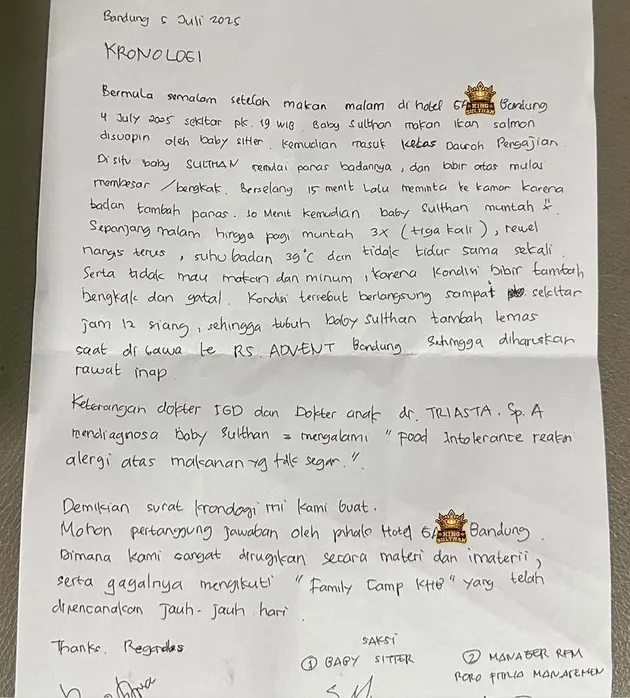 Bandung 5 Juli 2025
KRONOLOGI
Bermula semalam setelah makan malam di hotel GA KING SULTHAN Bandung
4 July 2025 sekitar pk. 19 WIB. Baby Sulthan makan ikan salmon
disuapin oleh baby sitter. Kemudian masuk kelas Dauroh Pengajian.
Disitu baby SULTHAN mulai panas badannya, dan bibir atas mulai
membesar / bengkak. Berselang 15 menit lalu meminta ke kamar karena
badan tambah panas. 10 Menit kemudian baby Sulthan muntah "
Sepanjang malam hingga pagi muntah 3x (tiga kali), rewel
nangis terus, suhu badan 39°C dan tidak tidur sama sekali.
Serta tidak mau makan dan minum, karena kondisi bibir tambah
bengkak dan gatal. Kondisi tersebut berlangsung sampai sekitar
jam 12 siang, sehingga tubuh baby Sulthan tambah lemas
saat di bawa ke RS. ADVENT Bandung sehingga diharuskan
rawat inap.
Keterangan dokter IGD dan Dokter anak dr. TRIASTA. Sp. A
mendiagnosa Baby Sulthan = mengalami "Food Intolerance reaksi
alergi atas makanan yg tdk segar.".
Demikian surat kronologi ini kami buat.
Mohon pertanggung jawaban oleh pihak Hotel GA KING SULTHAN Bandung.
Dimana kami sangat dirugikan secara materi dan imaterii,
serta gagalnya mengikuti "Family Camp KHB" yang telah
direncanakan jauh-jauh hari.
Thanks. Regards
SAKSI
① BABY SITTER
② MANAGER RFM